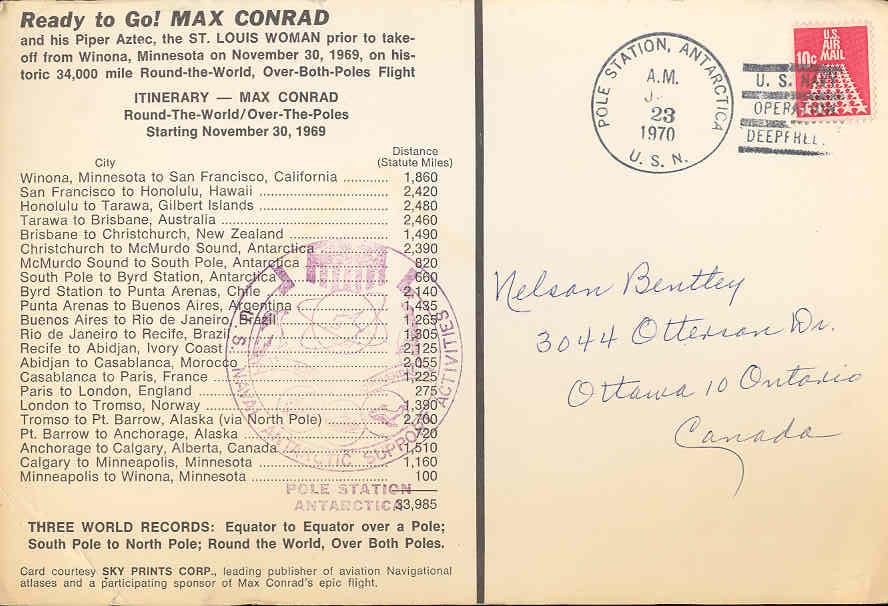 Ready to Go! MAX CONRAD
and his Piper Aztec, the ST. LOUIS WOMAN prior to take-
off from Winona, Minnesota on November 30, 1969, on his-
toric 34,000 mile Round-the-World, Over-Both-Poles Flight
ITINERARY — MAX CONRAD
Round-The-World/Over-The-Poles
Starting November 30, 1969
City Distance (Statute Miles)
Winona, Minnesota to San Francisco, California ............ 1,860
San Francisco to Honolulu, Hawaii ............ 2,420
Honolulu to Tarawa, Gilbert Islands ............ 2,480
Tarawa to Brisbane, Australia ............ 2,460
Brisbane to Christchurch, New Zealand ............ 1,490
Christchurch to McMurdo Sound, Antarctica ............ 2,390
McMurdo Sound to South Pole, Antarctica ............ 820
South Pole to Byrd Station, Antarctica ............ 660
Byrd Station to Punta Arenas, Chile ............ 2,140
Punta Arenas to Buenos Aires, Argentina ............ 1,435
Buenos Aires to Rio de Janeiro, Brazil ............ 1,265
Rio de Janeiro to Recife, Brazil ............ 1,305
Recife to Abidjan, Ivory Coast ............ 2,125
Abidjan to Casablanca, Morocco ............ 2,055
Casablanca to Paris, France ............ 1,225
Paris to London, England ............ 275
London to Tromso, Norway ............ 1,390
Tromso to Pt. Barrow, Alaska (via North Pole) ............ 2,700
Pt. Barrow to Anchorage, Alaska ............ 720
Anchorage to Calgary, Alberta, Canada ............ 1,510
Calgary to Minneapolis, Minnesota ............ 1,160
Minneapolis to Winona, Minnesota ............ 100
33,985
THREE WORLD RECORDS: Equator to Equator over a Pole;
South Pole to North Pole; Round the World, Over Both Poles.
Card courtesy SKY PRINTS CORP., leading publisher of aviation Navigational
atlases and a participating sponsor of Max Conrad's epic flight.
U. S. NAVAL ANTARCTIC SUPPORT ACTIVITIES
POLE STATION
ANTARCTICA
POLE STATION, ANTARCTICA
A.M.
23
1970
U. S. N.
U. S. NAVY
OPERATION
DEEPFREE
U.S.
AIR
MAIL
10c
Nelson Bentley
3044 Otterson Dr.
Ottawa 10 Ontario
Canada